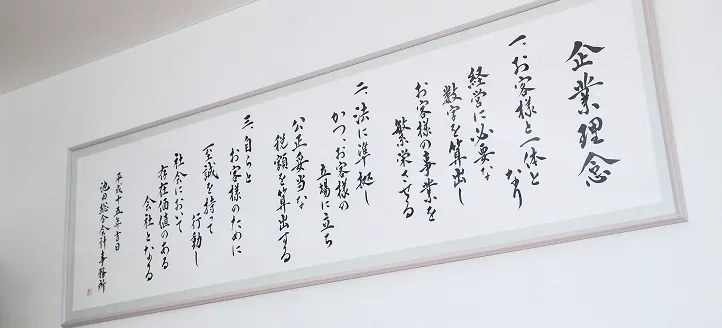 企業理念
一、お客様と一体と
なり
経営に必要な
数字を算出し
お客様の事業を
繁栄させる
二、法に準拠し
かつ、お客様の
立場に立ち
公正妥当な
税額を算出する
三、自らと
お客様のために
至誠を持って
行動し
社会において
存在価値のある
会社となる
平成十五年吉日
池田総合会計事務所